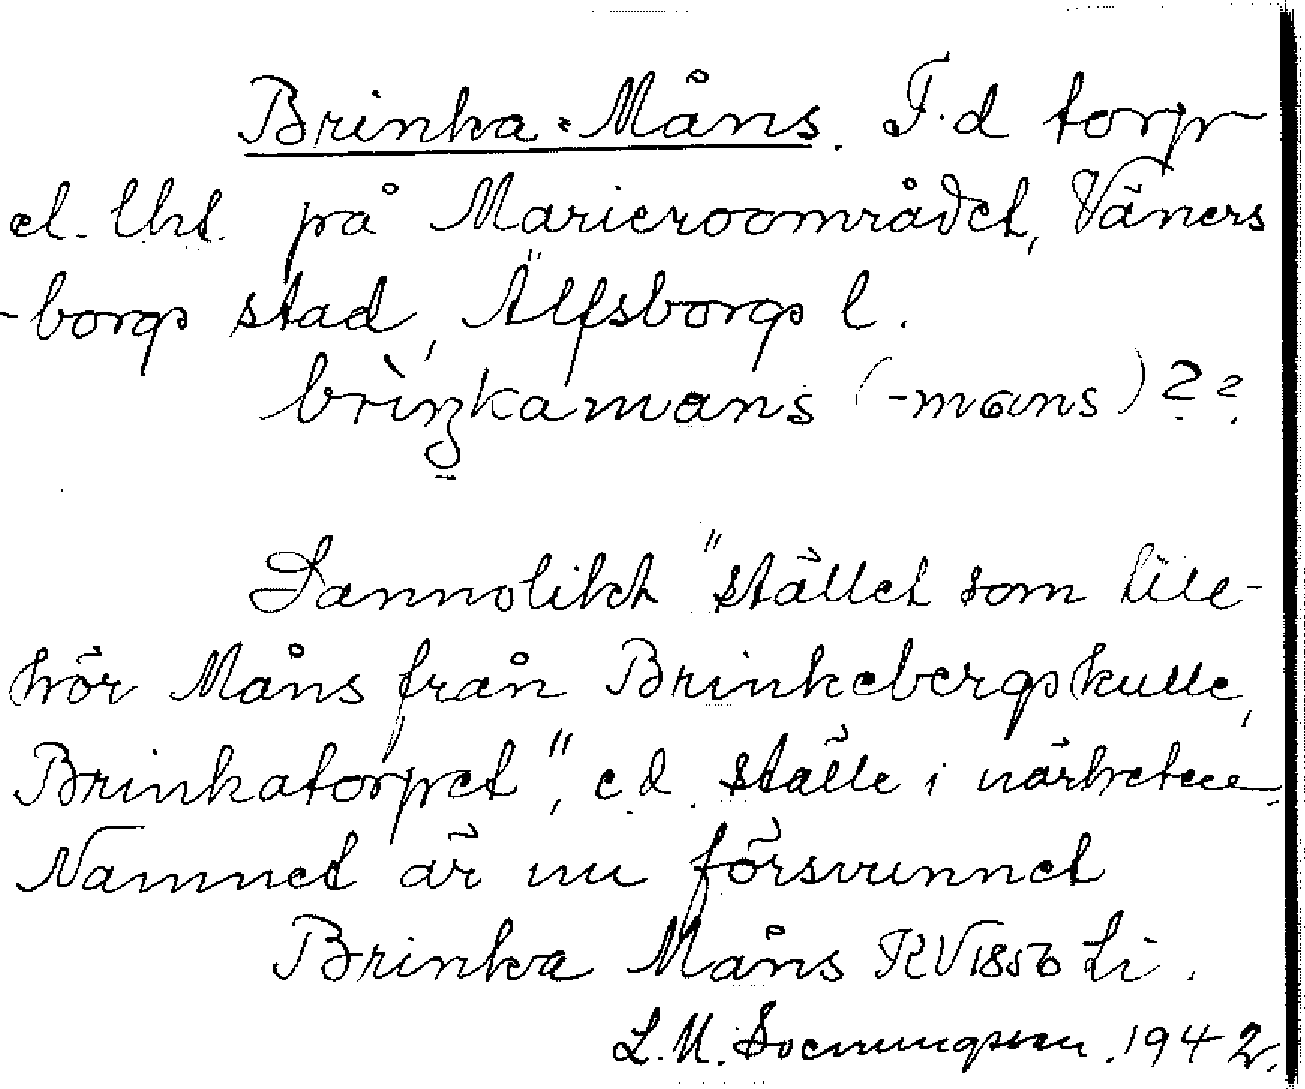 Brinka-Måns. F.d torp
el. lht. på Marieroområdet, Väners
-borgs stad, Älfsborgs l.
brìŋkamans (-mɑns)??
Sannolikt "stället som tille-
hör Måns från Brinkebergskulle,
Brinkatorpet", e.d. ställe i närheten.
Namnet är nu försvunnet
Brinka Måns RV 1856 Li.
L. M. 1942.